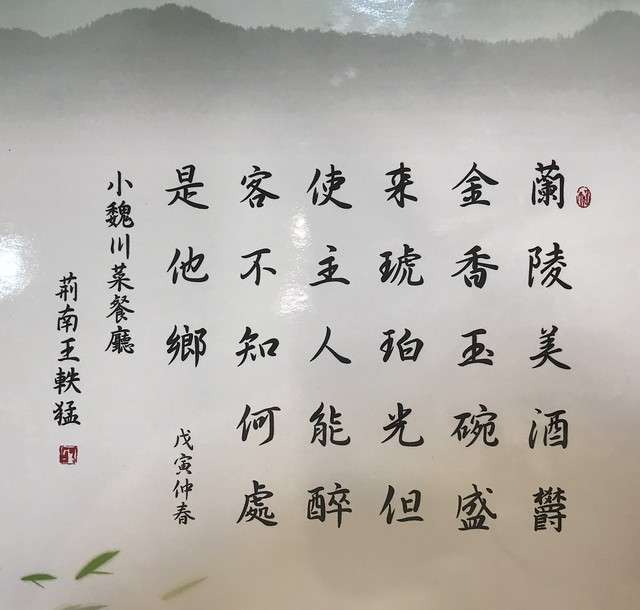 蘭陵美酒鬱
金香玉碗盛
来琥珀光但
使主人能醉
客不知何處
是他鄉
戊寅仲春
小魏川菜餐廳
荊南王軼猛